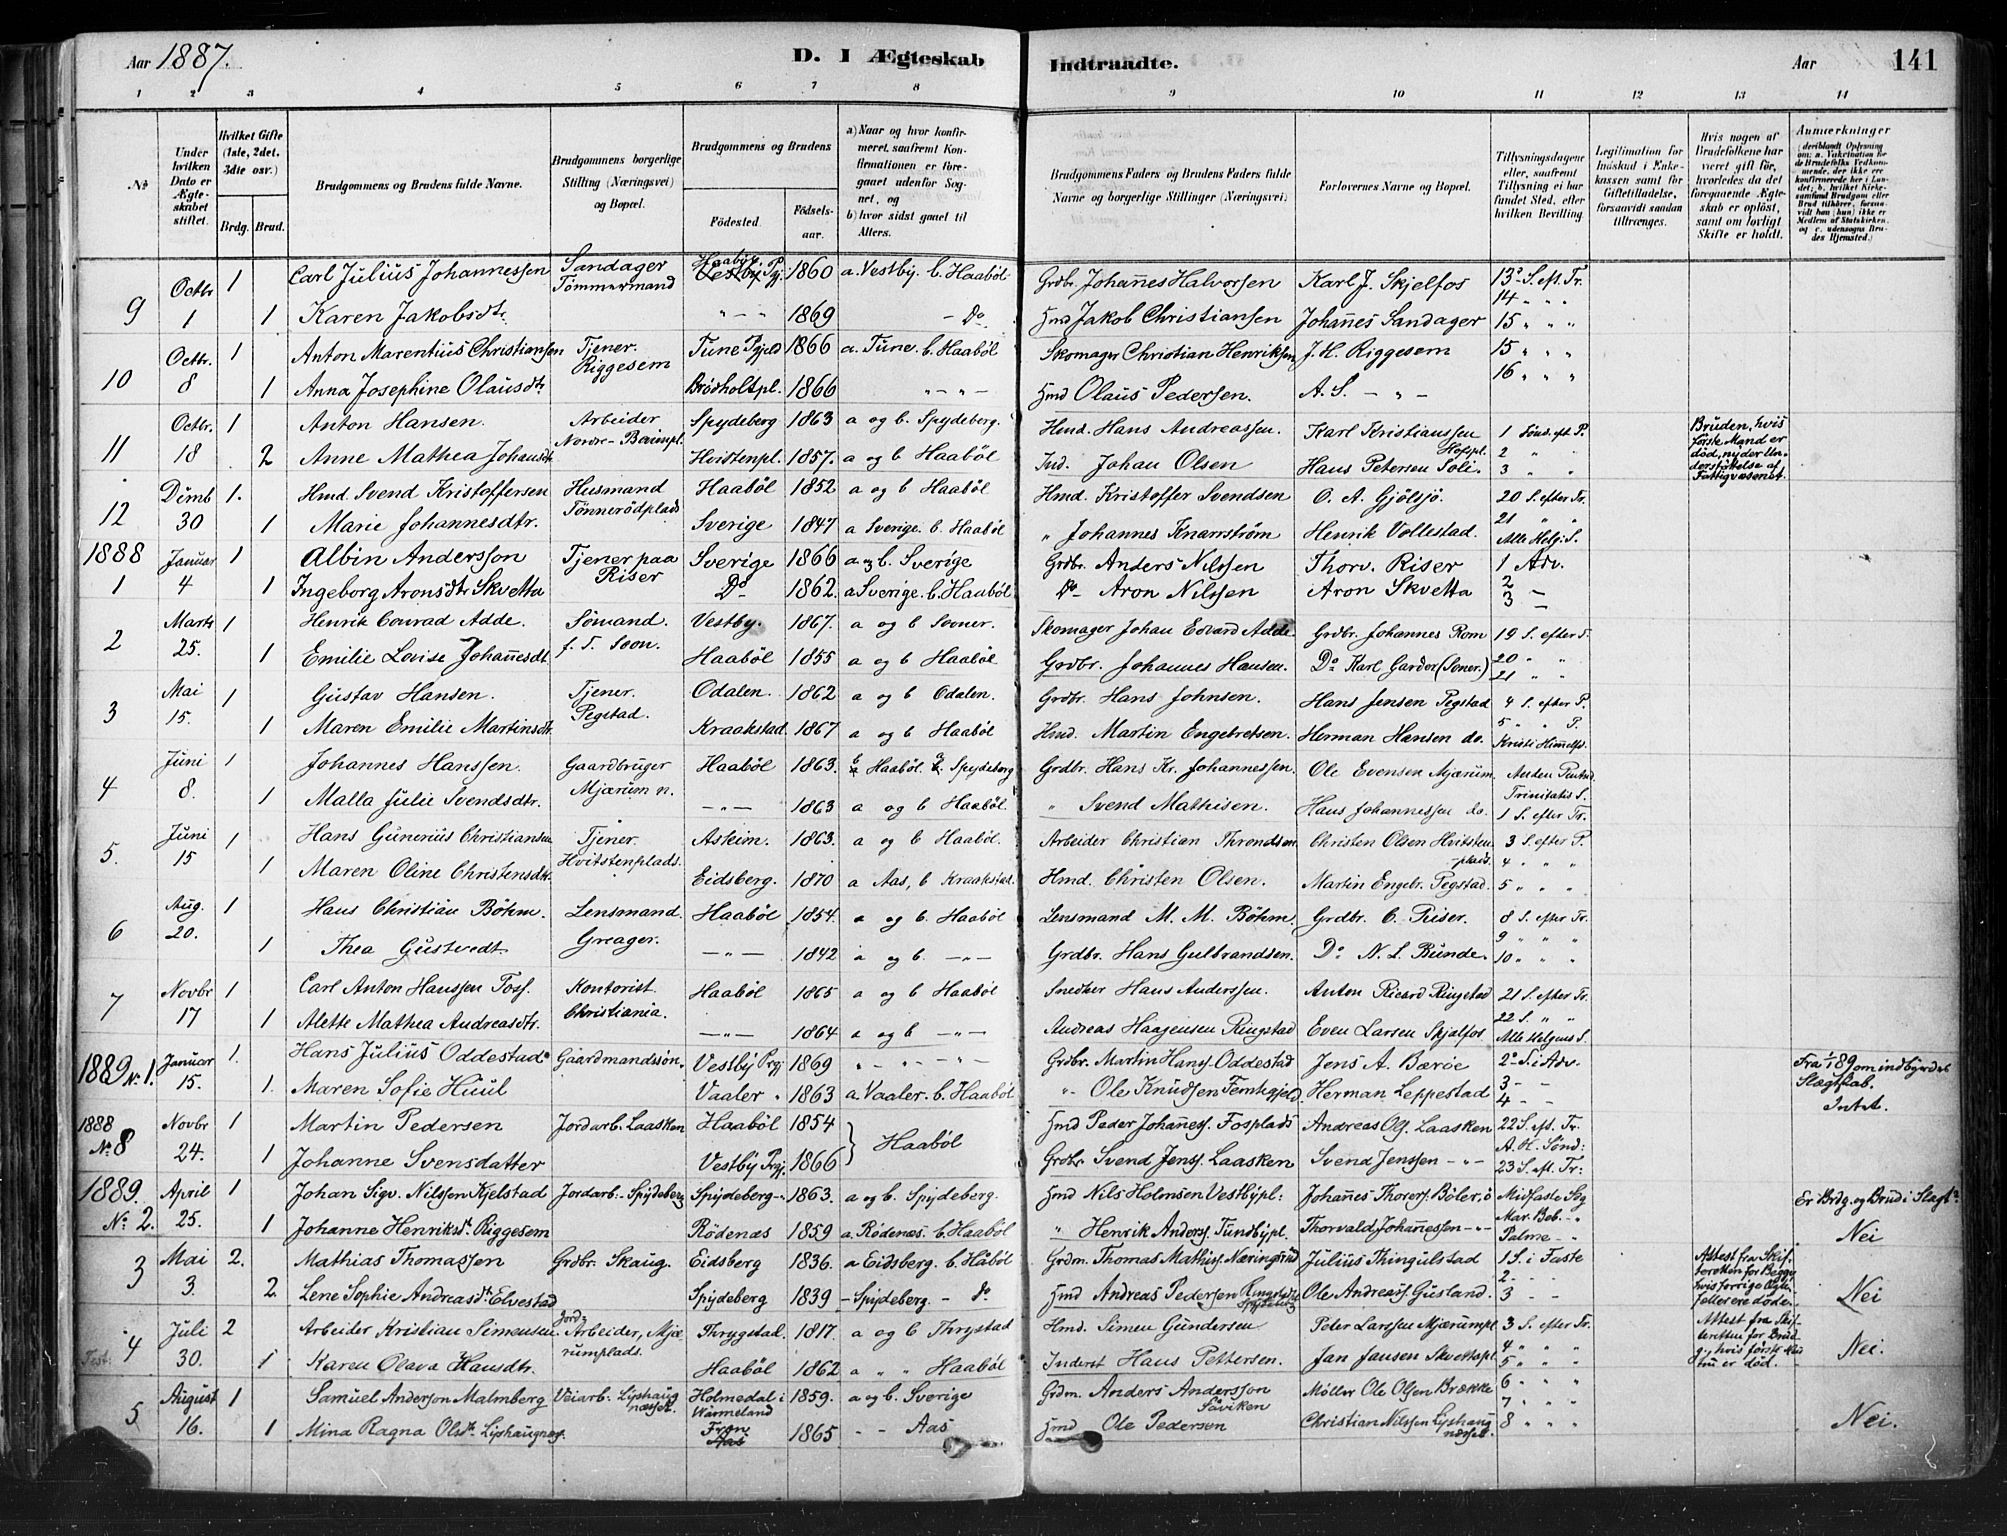 Aar 1887. D. I Ægteskab Indtraadte. Aar 141
1 2 3 4 5 6 7 8 9 10 11 12 13 14
No.
Under hvilken Dato er Ægteskabet stiftet.
Hvilket Gifte (1ste, 2det, 3die osv.)
Brdg. Brud.
Brudgommens og Brudens fulde Navne.
Brudgommens borgerlige Stilling (Næringsvei) og Bopæl.
Brudgommens og Brudens
Fødested. Fødselsaar.
a) Naar og hvor konfirmeret, saafremt Konfirmationen er foregaaet udenfor Sognet, og
b) hvor sidst gaaet til Alters.
Brudgommens Faders og Brudens Faders fulde Navne og borgerlige Stillinger (Næringsvei).
Forlovernes Navne og Bopæl.
Tillysningsdagene eller, saafremt Tillysning ei har fundet Sted, efter hvilken Bevilling.
Legitimation for Indskud i Enkekassen samt for Giftetilladelse, forsaavidt saadan tiltrænges.
Hvis nogen af Brudefolkene har været gift før, hvorledes da det foregaaende Ægteskab er opløst, samt om lovligt Skifte er holdt.
Anmerkninger (deriblandt Oplysning om: a. Vakcination for de Brudefolks Vedkommende, der ikke ere konfirmerede her i Landet; b. hvilket Kirkesamfund Brudgom eller Brud tilhører, forsaavidt han (hun) ikke er Medlem af Statskirken, og c. udensogns Brudes Hjemsted.)
9 Octbr 1 1 Carl Julius Johannessen Sandager Tømmermand Haabøl Vestby Pgj. 1860 a. Vestby. b. Haabøl. Grdbr. Johannes Halvorsen Karl J. Skjelfos 13de S. eft. Tr.
1 Karen Jakobsdtr. " - " 1869 - Do Hmd Jakob Christiansen Johannes Sandager 14 " " 15 " "
10 Octbr. 8 1 Anton Marentius Christiansen Tjener. Riggesem Tune Pgjeld 1866 a. Tune. b. Haabøl Skomager Christian Henriksen J. H. Riggesem 15 " "
1 Anna Josephine Olausdtr. Brødholtpl. 1866 " - " - Hmd Olaus Pedersen. A. S. - " - 16 " "
11 Octbr. 18 1 Anton Hansen. Arbeider Nordre- Spydeberg 1863 a og b. Spydeberg. Hmd. Hans Andreassen. Karl Kristianssen Hofspl. 1 Sønd. eft P.
2 Anne Mathea Johansdtr Hvistenpl. 1857. a og b Haabøl Ind. Johan Olsen Hans Petersen Soli. 2 " " 3 " "
Bruden, hvis første Mand er død, nyder Understøttelse af Fattigvæsenet.
12 Dcmb 30 1. Hmd. Svend Kristoffersen Husmand Tønnerødplads Haabøl 1852 a og b Haabøl Hmd. Kristoffer Svendsen O. A. Gjølsjø 20 S. efter Tr.
1 Marie Johannesdtr. Sverige 1847 a Sverige. b. Haabøl " Johannes Knarrstrøm Henrik Vollestad. 21 " " Alle Helg. S.
1888
1 Januar 4 1 Albin Andersson Tjener paa Riser Sverige 1866 a og b. Sverige Grdbr. Anders Nilssen Thorv. Riser 1 Adv.
1 Ingeborg Aronsdtr Skvetta Do 1862. a Sverige. b. Haabøl Do Aron Nilssen Aron Skvetta 2 - 3 -
2 Marts 25. 1 Henrik Conrad Adde. Sømand. f. T. Soon. Vestby. 1867. a og b Sooner. Skomager Johan Edvard Adde. Grdbr. Johannes Rom 19 S. efter T.
1 Emilie Lovise Johannesdt. Haabøl 1855 a og b Haabøl Grdbr. Johannes Hansen. Do Karl Garder (Soner.) 20 " " 21 " "
3 Mai 15. 1 Gustav Hansen. Tjener. Pegstad. Odalen. 1862 a og b Odalen. Grdbr. Hans Johnsen. Hans Jensen Pegstad 4 S. efter P.
1 Maren Emilie Martinsdtr. Kraakstad. 1867 a og b Haabøl Hmd. Martin Engebretsen. Herman Hansen do. 5 " " P. Kristi Himmelfs.
4 Juni 8. 1 Johannes Hanssen. Gaardbruger Mjærum n. Haabøl 1863. b Haabøl. a Spydeberg Grdbr. Hans Kr. Johannessen. Ole Evensen Mjærum. Anden Pintsd.
1 Malla Julie Svendsdtr. - " - 1863 a og b Haabøl. " Svend Mathisen. Hans Johannessen do. Trinitatis S. 1 S. efter Tr.
5. Juni 15 1 Hans Gunerius Christiansen Tjener. Hvitstenplads. Askim. 1863. a og b Haabøl. Arbeider Christian Throndsen Christen Olsen Hvitstenplads. 3 S. efter P.
1 Maren Oline Christensdtr. Eidsberg. 1870 a Aas, b Kraakstad. Hmd. Christen Olsen. Martin Engebr. Pegstad. 4 " " 5 " "
6 Aug. 20. 1 Hans Christian Bøhm. Lensmand. Greager. Haabøl 1854. a og b Haabøl Lensmand M. M. Bøhm. Grdbr. C. Riser. 8 S. efter Tr.
1 Thea Gustvedt. - " - 1842 a og b. - " - Grdbr. Hans Gulbrandsen. Do N. L. Bunde. 9 " " 10 " "
7 Novbr 17 1 Carl Anton Hanssen Foss. Kontorist. Christiania. Haabøl 1865 a og b Haabøl Snedker Hans Anderssen. Anton Ricard Ringstad 21 S. efter Tr.
1 Alette Mathea Andreasdtr. - " - 1864 a og b - " - Andreas Haagensen Ringstad Even Larsen Skjelfos 22 S. " " Alle Helgens S.
1889 No. 1. Januar 15. 1. Hans Julius Oddestad. Gaardmandssøn. Vestby Prgj. 1869 " - " - " - Grdbr. Martin Hanss. Oddestad Jens A. Bærøe 2den S. i Adv.
1. Maren Sofie Huul Vaaler " 1863 a. Vaaler. b. Haabøl " Ole Knudsen Femkjeld. Herman Leppestad 3 - - 4 - -
Fra 1/1 89 om indbyrdes Slægtskab. Intet.
1888 No. 8 Novbr 24. 1 Martin Pedersen Jordarb. Laasken Haabøl 1854 Haabøl Hmd Peder Johaness. Fosplads Andreas Ols. Laasken 22 S. eft. Tr.
1 Johanne Svensdatter Vestby Prgj. 1866 Grdbr. Svend Jenss. Laasken Svend Jenssen - " - A. H. Sønd: 23 S. eft. Tr:
1889. No. 2. April 25. 1 Johan Sigv. Nilssen Kjelstad Jordarb. - Spydeberg Spydeberg 1863. a og b. Spydeberg. Hmd Nils Holmsen Vestbypl: Johannes Thorers. Bøler, ø Midfaste Sg
1 Johanne Henriksdr. Riggesem Rødenæs 1859 a. Rødenæs. b. Haabøl " Henrik Anderss. Tundbypl. Thorvald Johannessen - " - Mar. Beb. - " Palme - "
Er Brdg. og Brud i Slægt? Nei
3 Mai 3. 2. Mathias Thomassen Grdbr. Skaug. Eidsberg 1836. a Eidsberg. b. Håbøl Grdm. Thomas Mathiss. Næringsrud Julius Thingulstad 1 S. i Faste
2. Lene Sophie Andreasdr. Elvestad Spydeberg 1839 - Spydeberg. - Do. Hmd Andreas Pedersen Spydeberg Ole Andreass. Gusland. 2 - - 3 - -
Attest fra Skifteretten for Begge, hvis forrige Ægtefeller ere døde. Nei
4 Juli 30. 2 Arbeider Kristian Simensen Jord-Arbeider, Mjærumplads. Thrygstad. 1817. a og b Thrystad Hmd. Simen Gundersen Peter Larssen Mjærumpl 3 S. efter Tr.
1 Karen Olava Hansdtr. Haabøl 1862 a " " Haabøl Inderst Hans Pettersen. Jan Jansen Skvettapl 4 " " 5 " "
Attest fra Skifteretten for Brudg., hvis første er død. Nei.
5 August 16. 1 Samuel Andersson Malmberg Veiarb. Lyshaugnæsset. Holmedal i Wærmeland 1859. a og b. Sverige Grdm. Anders Andersson Såviken Møller Ole Olsen Brække 6 " "
1 Mina Ragna Olsdr. Lyshaugnæs. Fron Aas 1865 - - Aas Hmd Ole Pedersen Christian Nilssen Lyshaugnæsset. 7 " " 8 " "
Nei.